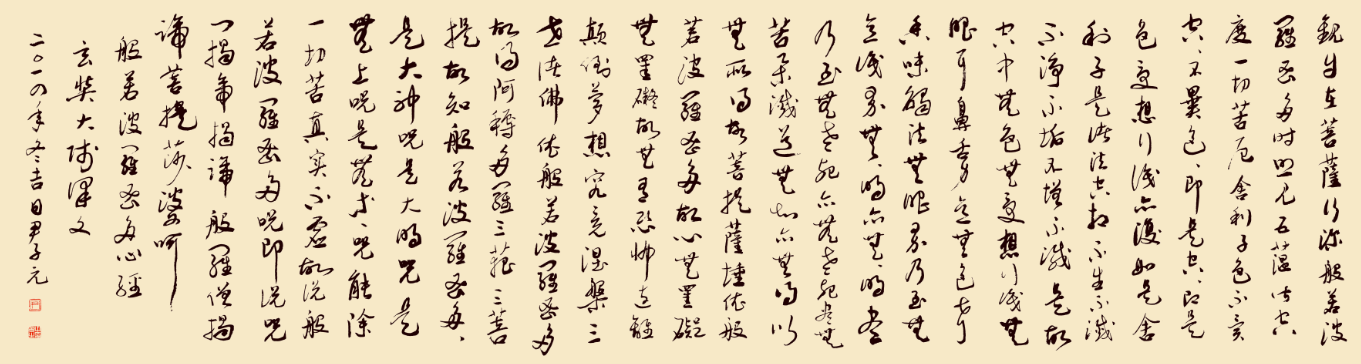 觀自在菩薩行深般若波
羅蜜多時照見五蘊皆空
度一切苦厄舍利子色不異
空々不異色々即是空々即是
色受想行識亦復如是舍
利子是諸法空相不生不滅
不淨不垢不增不減是故
空中無色無受想行識無
眼耳鼻舌身意無色聲
香味觸法無眼界乃至無
意識界無々明亦無々明盡
乃至無老死亦無老死盡無
苦集滅道無智亦無得以
無所得故菩提薩埵依般
若波羅蜜多故心無罣礙
無罣礙故無有恐怖遠離
顛倒夢想究竟涅槃三
世諸佛依般若波羅蜜多
故得阿耨多羅三藐三菩
提故知般若波羅蜜多
是大神咒是大明咒是
無上咒是無等々咒能除
一切苦真實不虛故說般
若波羅蜜多咒即說咒
曰揭帝揭諦般羅僧揭
諦菩提莎婆呵
般若波羅蜜多心經
玄奘大師譯文
二〇一四年冬吉日君子元